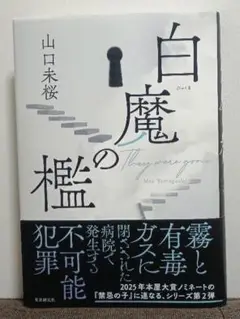 山口未桜
白魔の檻
They were gone
Mio Yamaguchi
霧と
有毒
ガスに
閉ざされた
病院で
発生する
不可能
犯罪
2025年本屋大賞ノミネートの
『禁忌の子』に連なる、シリーズ第2弾
東京創元社